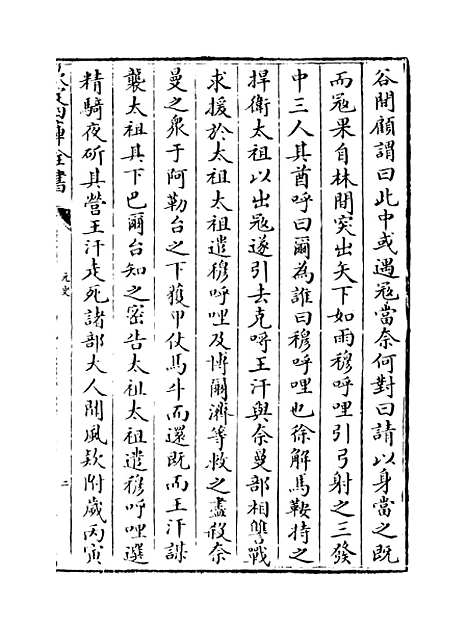 谷間顧謂曰此中或遇冦當奈何對曰請以身當之既
而冦果自林間突出矢下如雨穆呼哩引弓射之三發
中三人其酋呼曰爾為誰曰穆呼哩也徐解馬鞍持之
捍衛太祖以出冦遂引去克哷王汗與奈曼部相讐戰
求援於太祖太祖遣穆呼哩及博爾濟等救之盡殺奈
曼之衆于阿勒台之下獲甲仗馬牛而還既而王汗謀
襲太祖其下巴爾台知之密告太祖太祖遣穆呼哩選
精騎夜斫其營王汗走死諸部大人聞風欵附歲丙寅
欽定四庫全書
元史
二